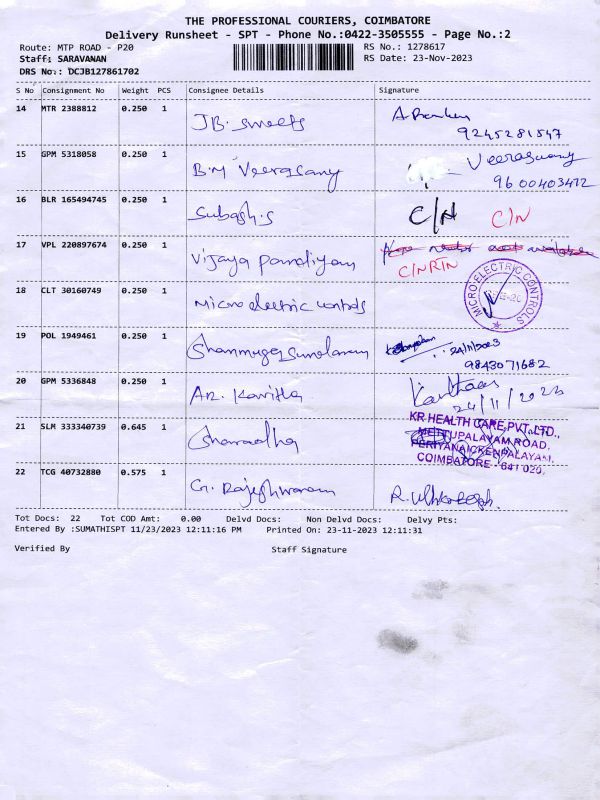 THE PROFESSIONAL COURIERS, COIMBATORE
Delivery Runsheet - SPT - Phone No.:0422-3505555 - Page No.:2
Route: MTP ROAD - P20
RS No.: 1278617
Staff: SARAVANAN
RS Date: 23-Nov-2023
DRS No.: DCJB127861702
S No Consignment No Weight PCS Consignee Details Signature
14 MTR 2388812 0.250 1 JB. Sweets
9245281547
15 GPM 5318058 0.250 1 B.M Veerasamy Veerasamy
9600403412
16 BLR 165494745 0.250 1 Subash.s C/N C/N
17 VPL 220897674 0.250 1 Vijaya Pandiyan
C/N RTN
18 CLT 30160749 0.250 1 Micro electric controls MICRO ELECTRIC CONTROLS
19 POL 1949461 0.250 1 Shanmuga Sundaram 24/11/2023
9843071682
20 GPM 5336848 0.250 1 AR. Kavitha
24/11/2023
21 SLM 333340739 0.645 1 Sharadha KR HEALTH CARE PVT. LTD.,
METTUPALAYAM ROAD,
PERIYANAICKENPALAYAM,
COIMBATORE - 641 020.
22 TCG 40732880 0.575 1 G. Rajeshwaran
Tot Docs: 22 Tot COD Amt: 0.00 Delvd Docs: Non Delvd Docs: Delvy Pts:
Entered By :SUMATHISPT 11/23/2023 12:11:16 PM Printed On: 23-11-2023 12:11:31
Verified By Staff Signature